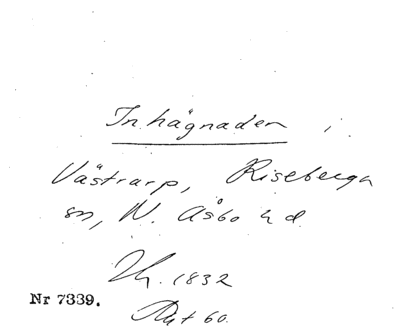 Inhägnaden i
Västrarp, Riseberga
sn, N. Åsbo hd.
Thr. 1832
Nr 7339.
Akt 60.